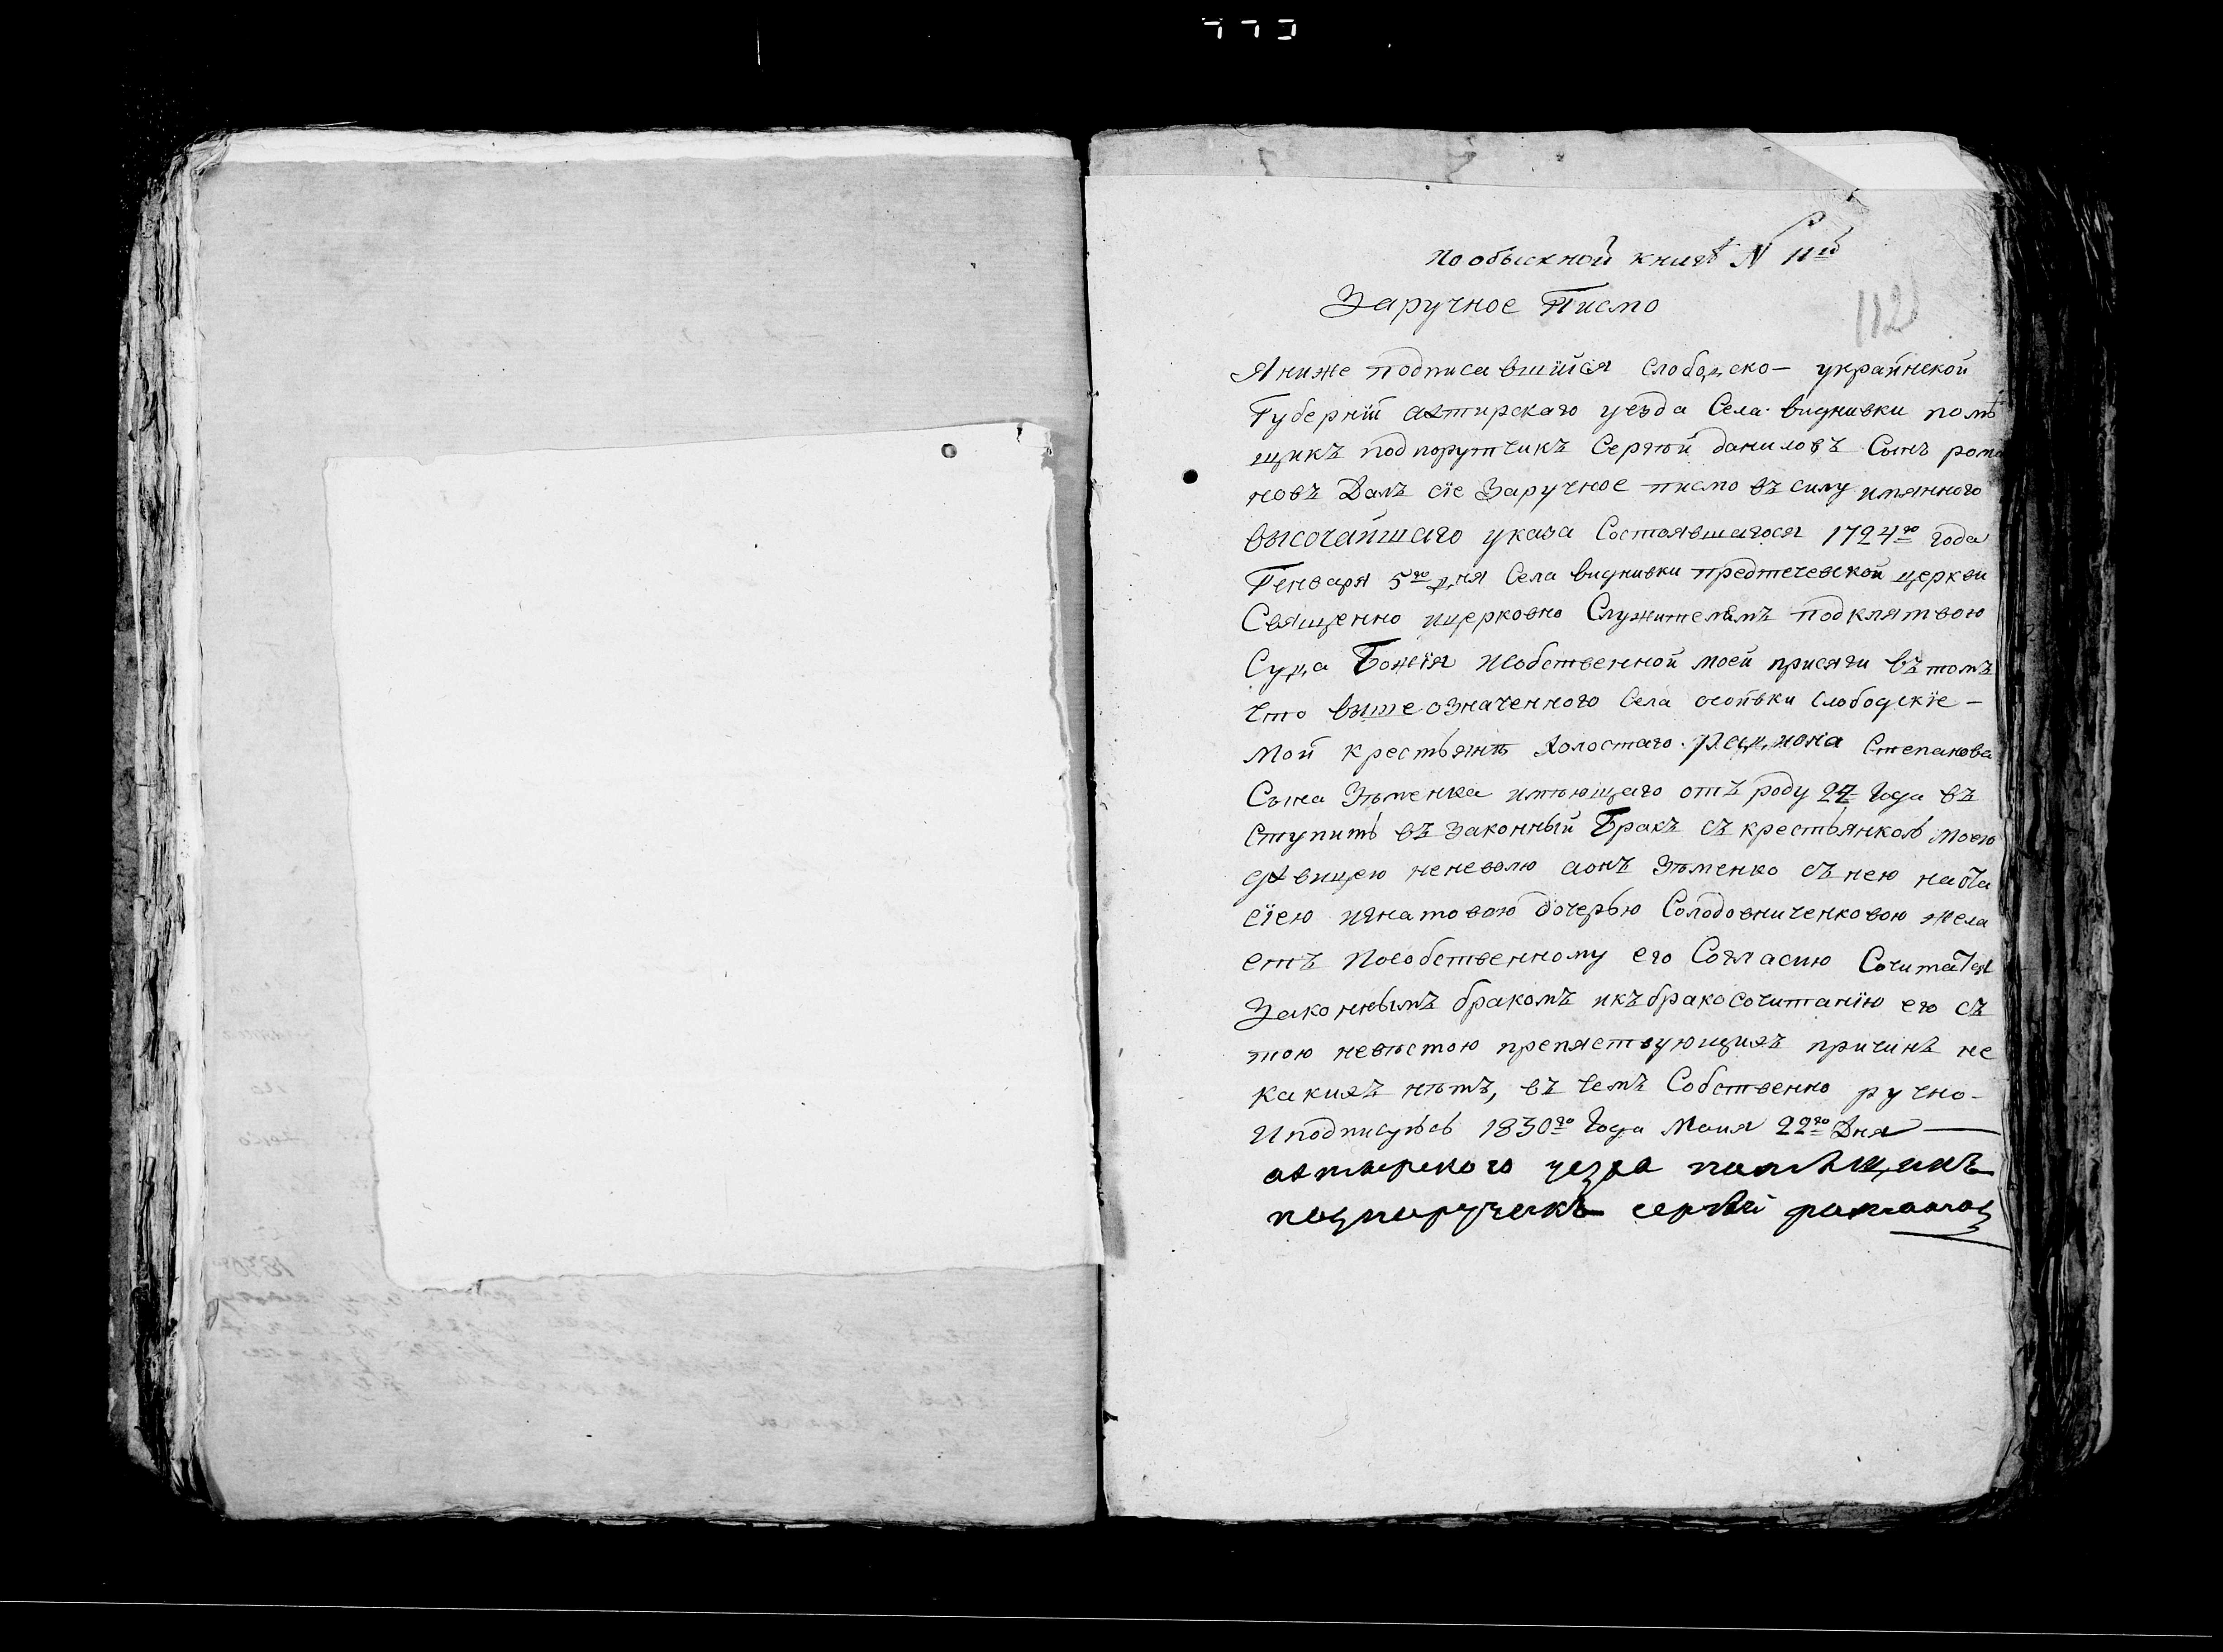 по обыскной книгѣ № 11й
Заручное Писмо
112
Я ниже подписавшийся слободско- украинской
Губернїи ахтирскаго уезда Села видникви помѣ
щикъ подпорутчикъ Сергѣй даниловъ Сынъ рома
новъ Далъ сїе Заручное писмо въ силу имянного
высочайшаго указа Состоявшагося 1724го года
Генваря 5го дня Села предтечевской церкви
Священно ицерковно Служителямъ подклятвою
Суда Божїя исобственной моей присяги втомъ
Что вышеозначенного Села слободскїе -
мой крестьянъ холостаго Радиона Степанова
Сына имѣющаго отъ роду года въ
ступить въ законный Бракъ съ крестьянкою моею
дѣвицею неневолю аонъ съ нею наста
сїею игнатовою дочерью Солодовниченковою жела
етъ Пособственному его Согласию Сочитатся
Законнымъ бракомъ икъбракосочитанїю его съ
тою невѣстою препяствующихъ причинъ не
какихъ нѣтъ, въ чемъ Собственно ручно-
Иподписуюсь 1830го Года Маия 22го Дня
ахтырского уезда помѣщикъ
подпоручикъ сергѣй романов